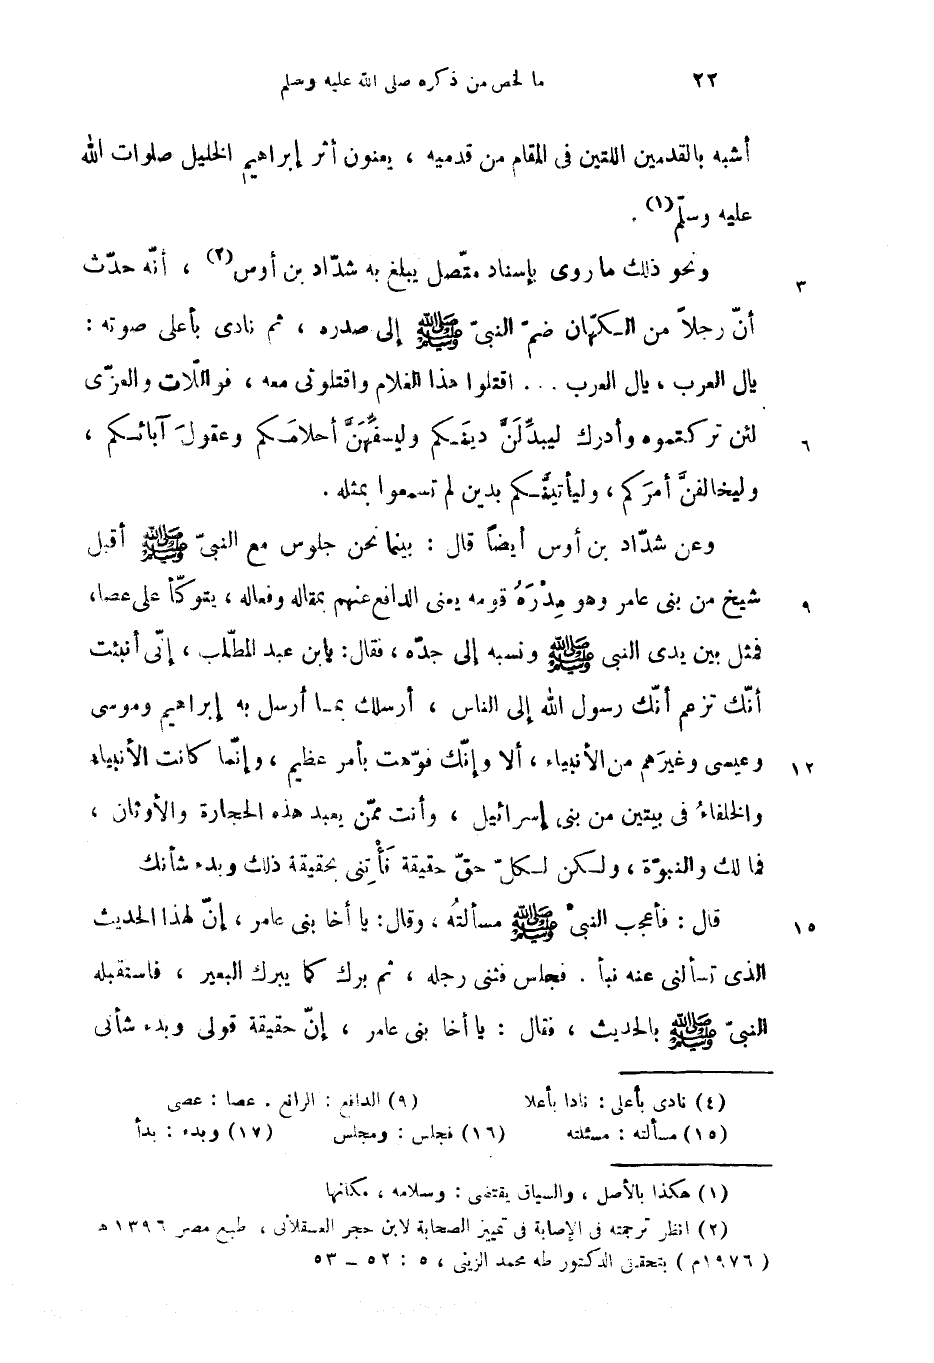 ٢٢ ما لخص من ذكره صلى الله عليه وسلم
أشبه بالقدمين اللتين فى المقام من قدميه ، يعنون أثر إبراهيم الخليل صلوات الله
عليه وسلّم(١) .
ونحو ذلك ما روى بإسناد متّصل يبلغ به شدّاد بن أوس(٢) ، أنّه حدّث
٣
أنّ رجلاً من الكهّان ضمّ النبىّ ﷺ إلى صدره ، ثم نادى بأعلى صوته :
يال العرب ، يال العرب ... اقتلوا هذا الغلام واقتلونى معه ، فواللّات والعزّى
لئن تركتموه وأدرك ليبدِّلَنَّ دينَكم وليسفِّهَنَّ أحلامَكم وعقولَ آبائكم ،
٦
وليخالفنَّ أمرَكم ، وليأتينَّكم بدين لم تسمعوا بمثله .
وعن شدّاد بن أوس أيضاً قال : بينما نحن جلوس مع النبىّ ﷺ أقبل
شيخ من بنى عامر وهو مِدْرَهُ قومه يعنى الدافع عنهم بمقاله وفعاله ، يتوكّأ على عصا،
٩
فمثل بين يدى النبى ﷺ ونسبه إلى جدّه ، فقال: يابن عبد المطّلب ، إنّى أنبئت
أنّك تزعم أنّك رسول الله إلى الناس ، أرسلك بما أرسل به إبراهيم وموسى
وعيسى وغيرَهم من الأنبياء ، ألا وإنّك فوّهت بأمر عظيم ، وإنّما كانت الأنبياء
١٢
والخلفاءُ فى بيتين من بنى إسرائيل ، وأنت ممّن يعبد هذه الحجارة والأوثان ،
فما لك والنبوّة ، ولكن لكلّ حقّ حقيقة فَأْتِنى بحقيقة ذلك وبدء شأنك
قال : فأعجب النبىَّ ﷺ مسألتُه ، وقال: يا أخا بنى عامر ، إنّ لهذا الحديث
١٥
الذى تسألنى عنه نبأ . فجلس فثنى رجله ، ثم برك كما يبرك البعير ، فاستقبله
النبىّ ﷺ بالحديث ، فقال : يا أخا بنى عامر ، إنّ حقيقة قولى وبدء شأنى
(٤) نادى بأعلى : نادا بأعلا (٩) الدافع : الرافع . عصا : عصى
(١٥) مسألته : مسئلته (١٦) فجلس : ومجلس (١٧) وبدء : بدأ
(١) هكذا بالأصل ، والسياق يقتضى : وسلامه ، مكانها
(٢) انظر ترجمته فى الإصابة فى تمييز الصحابة لابن حجر العسقلانى ، طبع مصر ١٣٩٦ هـ
( ١٩٧٦م ) بتحقيق الدكتور طه محمد الزينى ، ٥ : ٥٢ – ٥٣